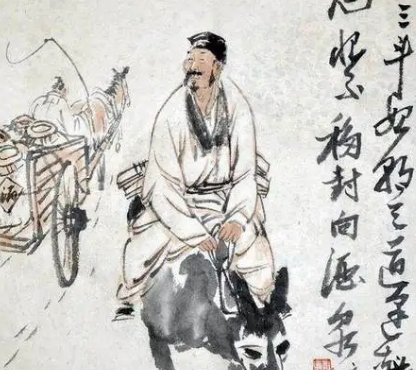 三斗始朝天道逢
恨不移封向酒泉
酒